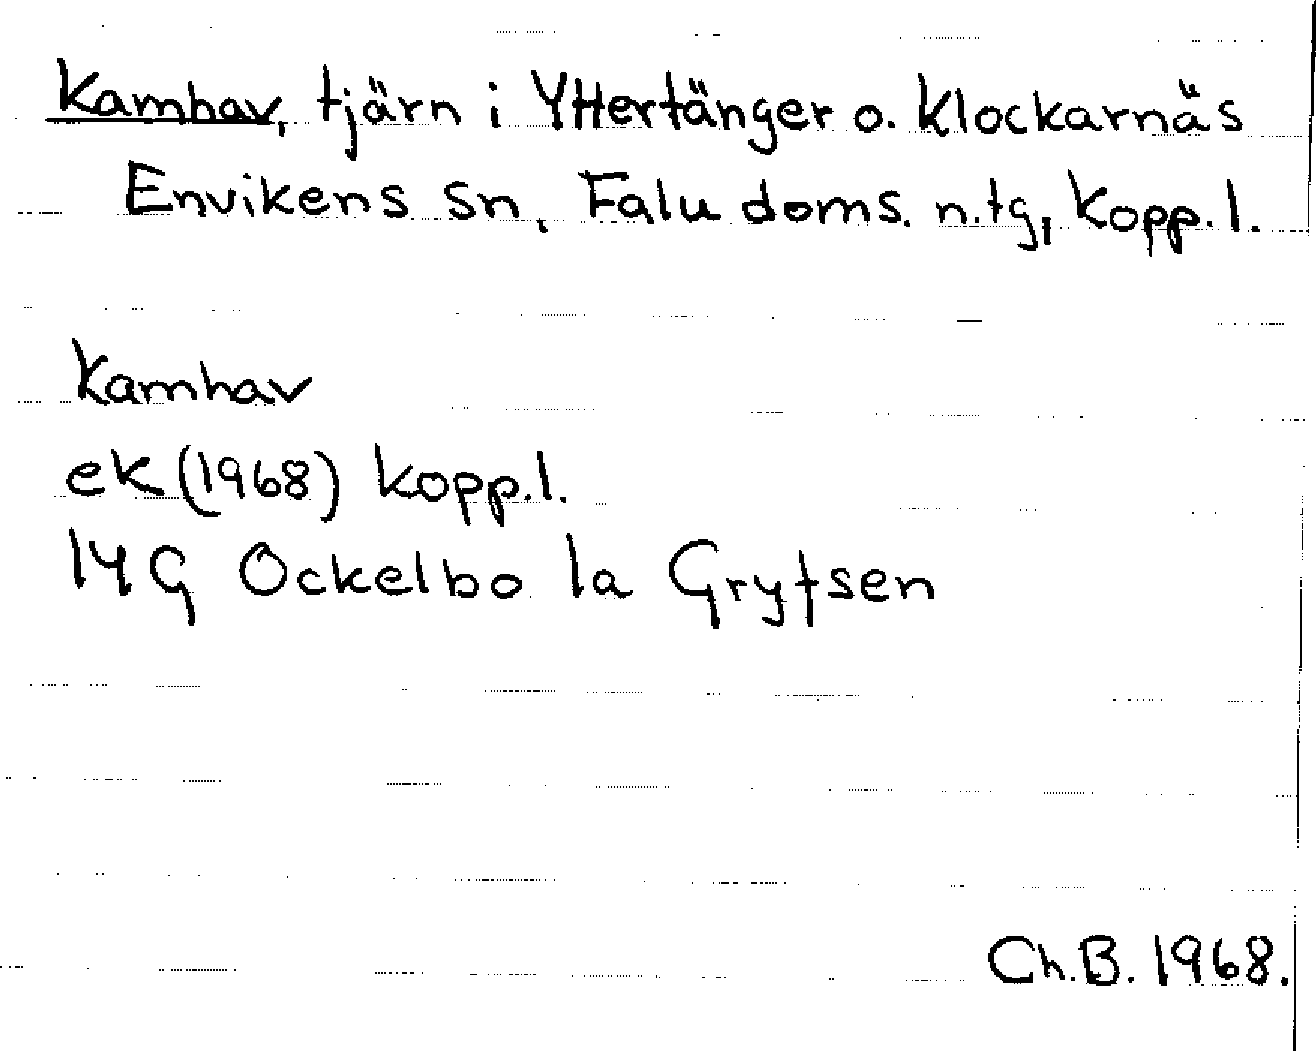 Kamhav, tjärn i Yttertänger o. Klockarnäs
Envikens sn, Falu doms. n.tg, Kopp.l.
Kamhav
ek (1968) Kopp.l.
14G Ockelbo 1a Grytsen
Ch.B. 1968.